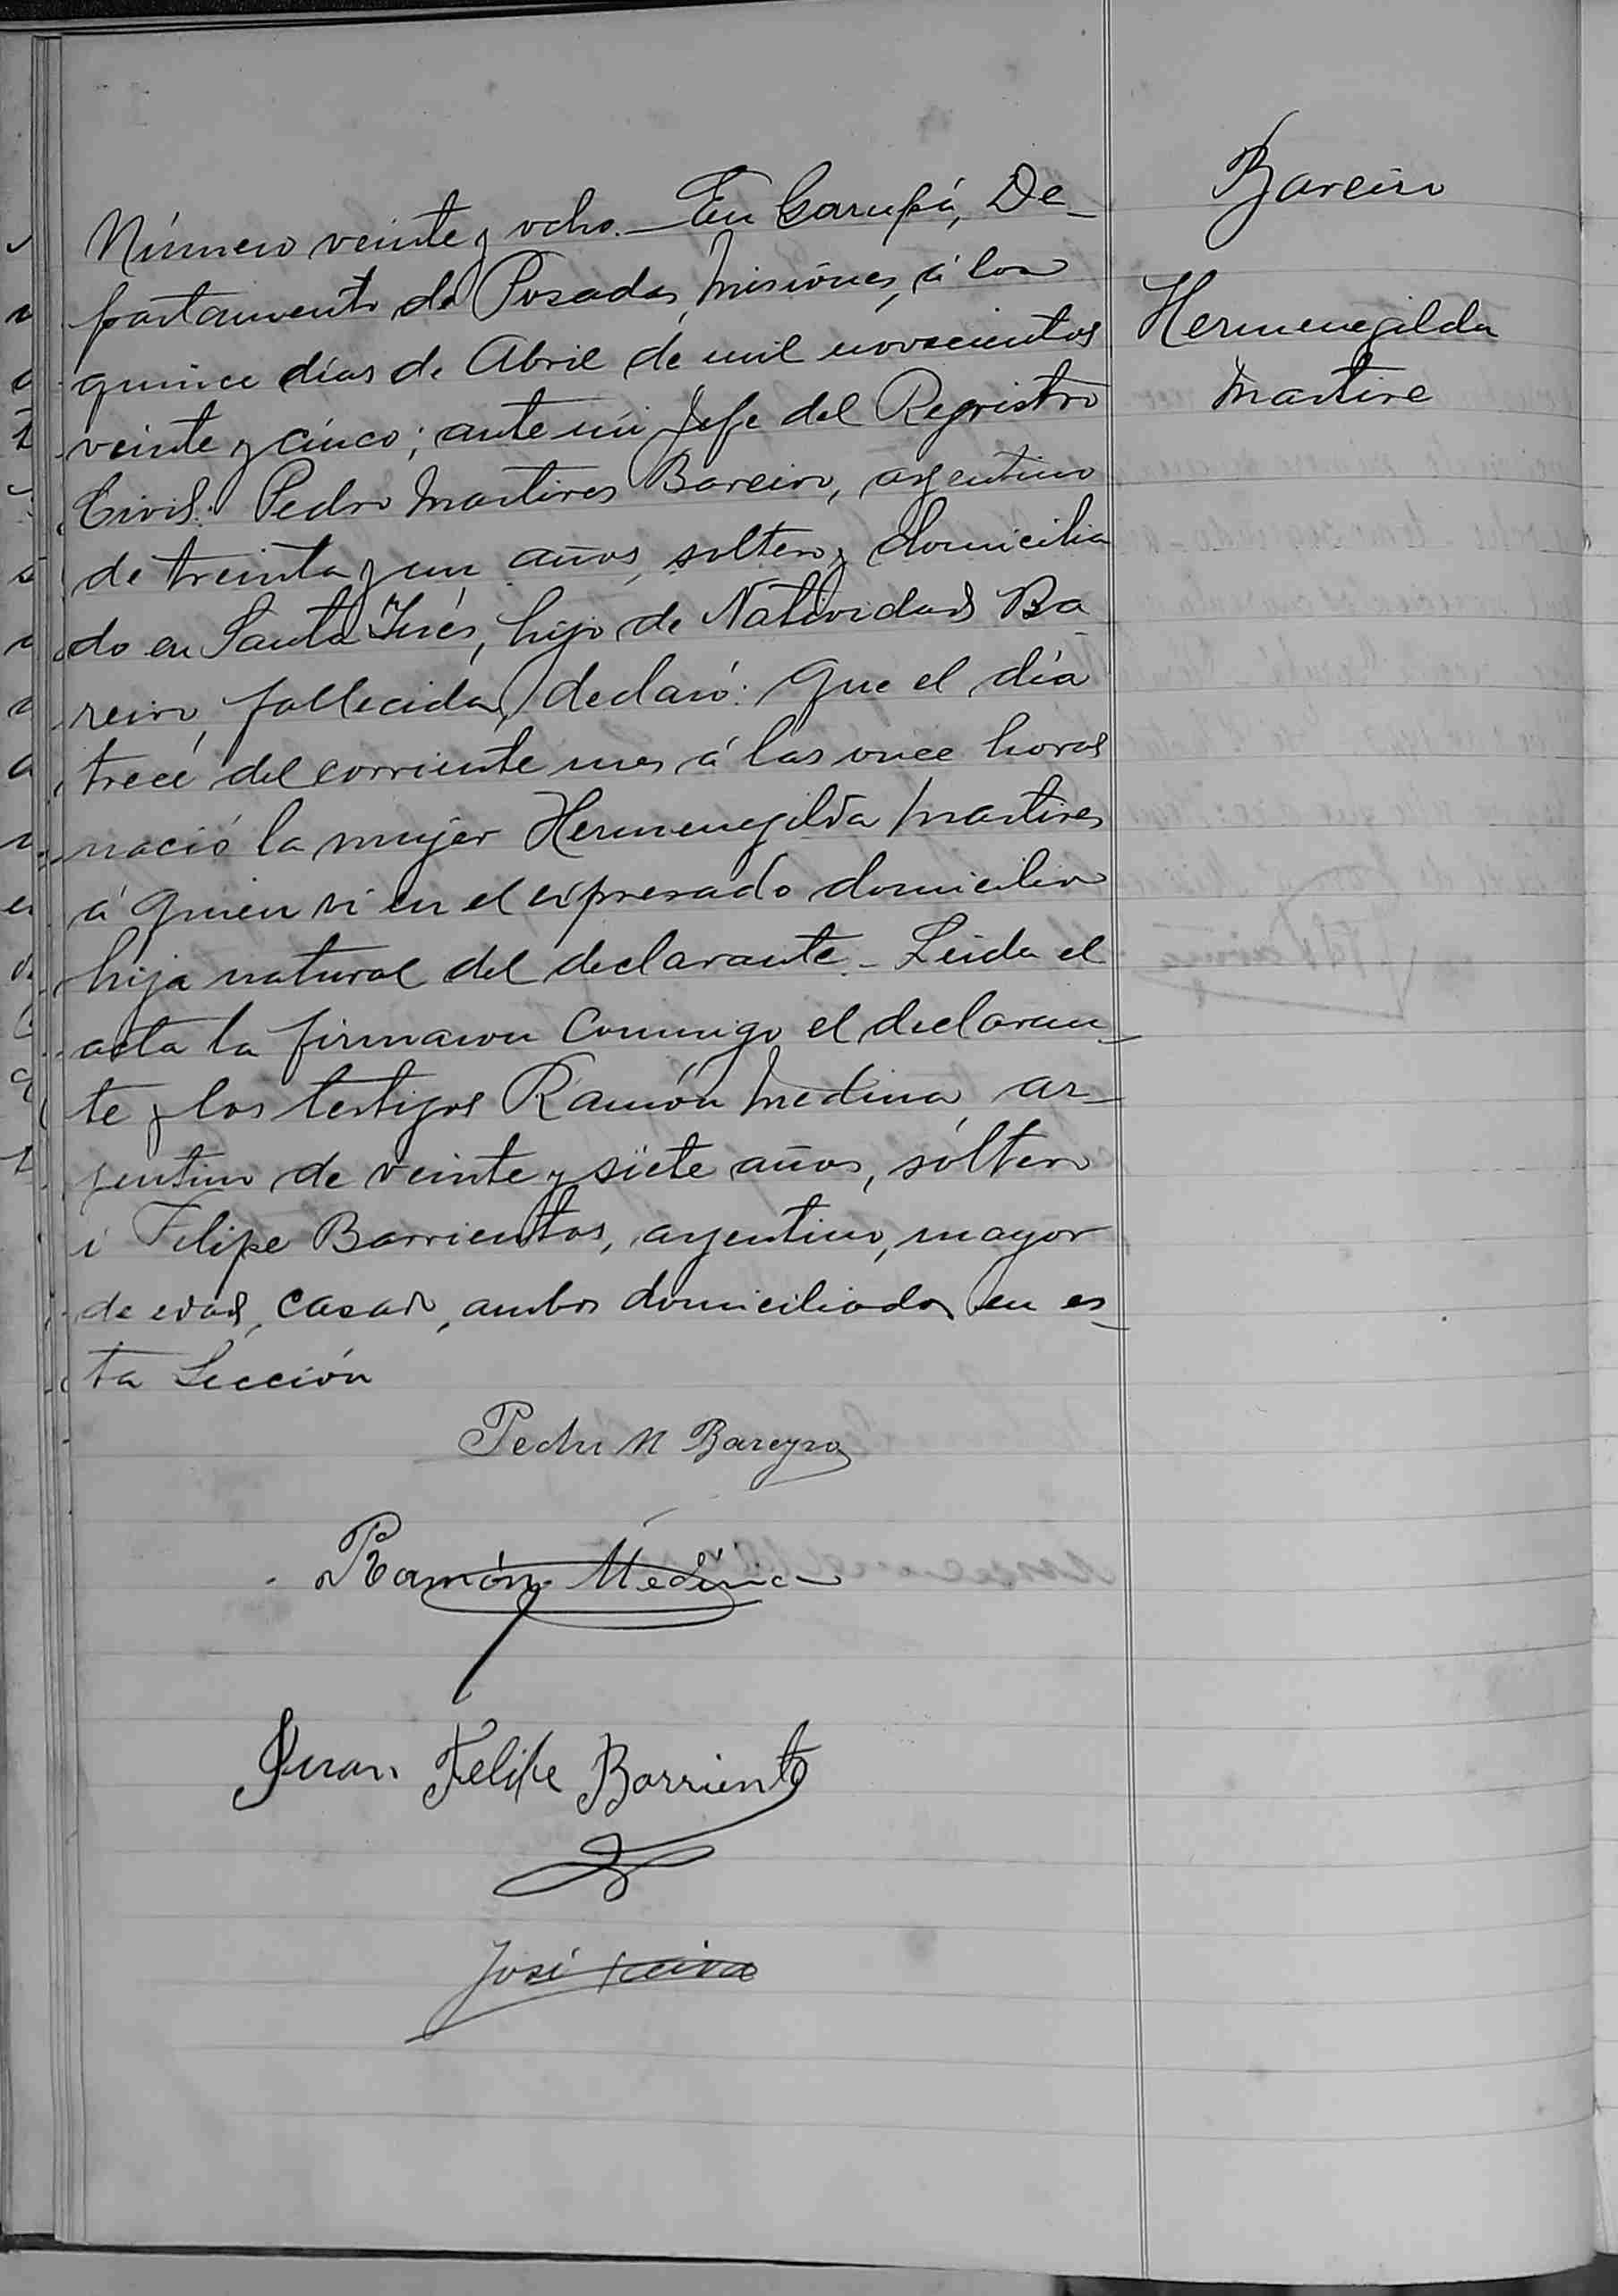 Número veinte y ocho. En Garupá, De-
partamento de Posadas, Misiones, á los
quince días de Abril de mil novecientos
veinte y cinco; ante mi Jefe del Registro
Civil: Pedro Martires Bareiro, argentino
de treinta y un años, soltero, domicilia
do en Santa Inés, hijo de Natividad Ba
reiro, fallecida, declaró: Que el día
trece del corriente mes á las once horas
nació la mujer Hermenegilda Martires
á quien vi en el expresado domicilio
hija natural del declarante. - Leida el
acta la firmaron conmigo el declaran-
te y los testigos Ramón Medina, ar-
gentino de veinte y siete años, soltero
i Felipe Barrientos, argentino, mayor
de edad, casado, ambos domiciliados en es-
ta Sección
Pedro M Bareyro
Ramón Medina
Juan Felipe Barriento
José
Bareiro
Hermenegilda
Martire